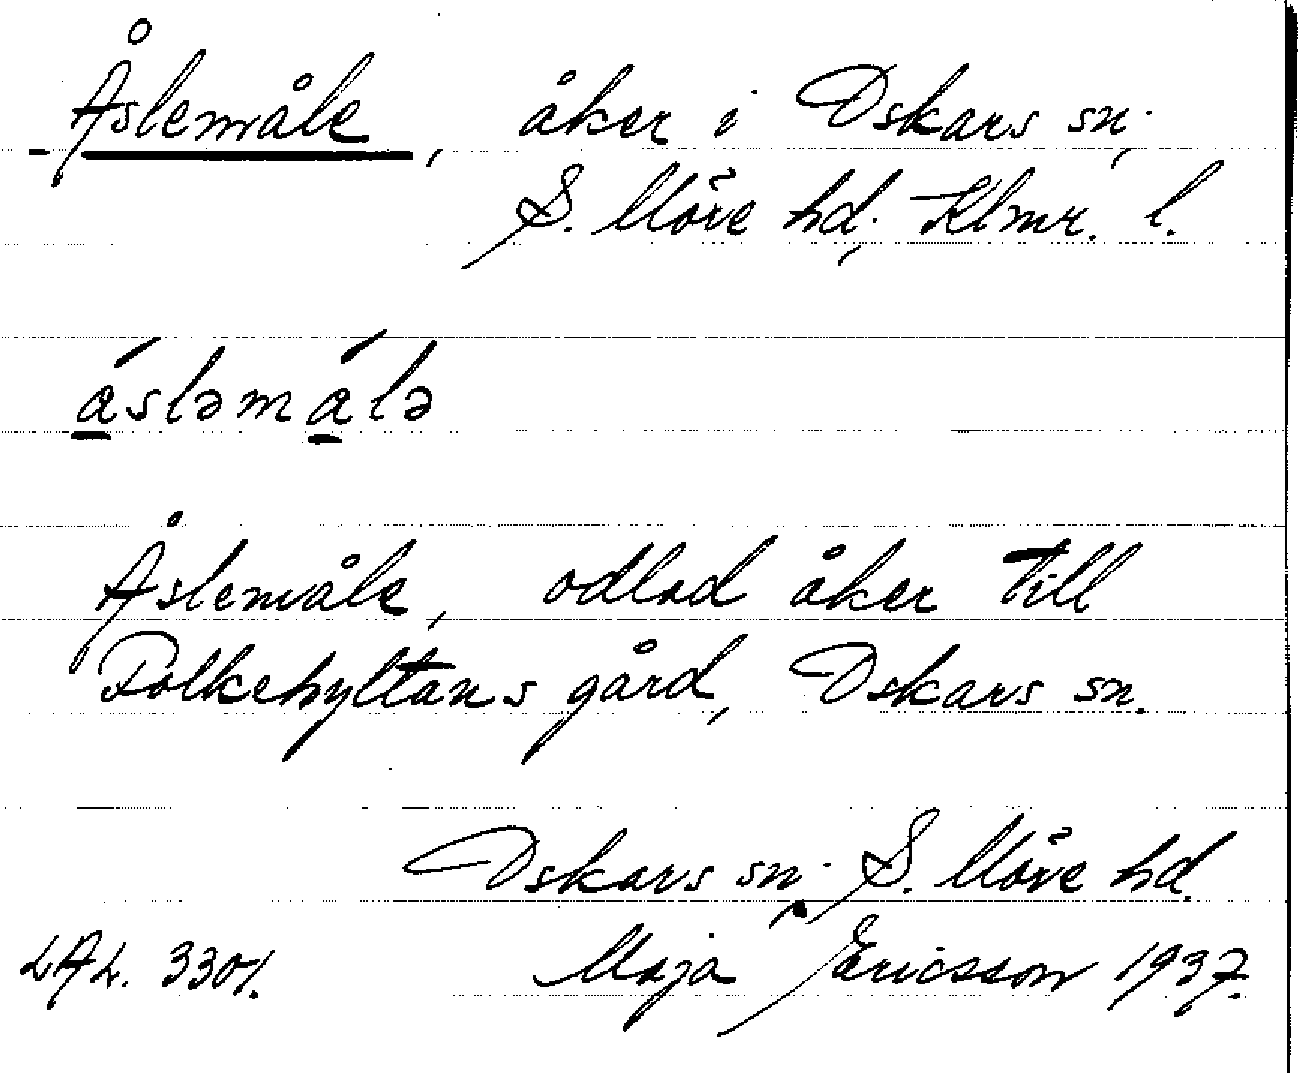 Åslemåle, åker i Oskars sn;
S. Möre hd; Klmr. l.
a̲´sləma̲´lə
Åslemåle, odlad åker till
Folkehyltans gård, Oskars sn.
Oskars sn; S. Möre hd.
LAL. 3301. Maja Ericsson 1937.